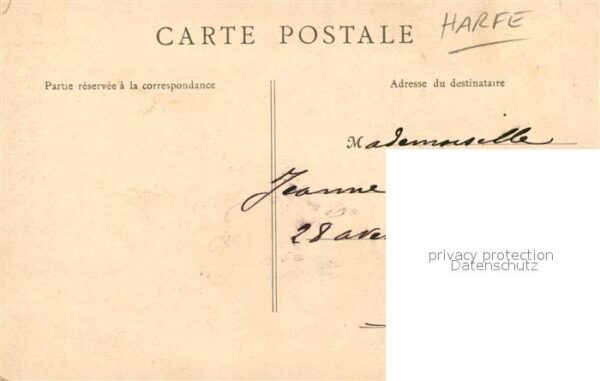 HARFE
CARTE POSTALE
Partie réservée à la correspondance
Adresse du destinataire
Mademoiselle
Jeanne
28 ave
privacy protection
Datenschutz